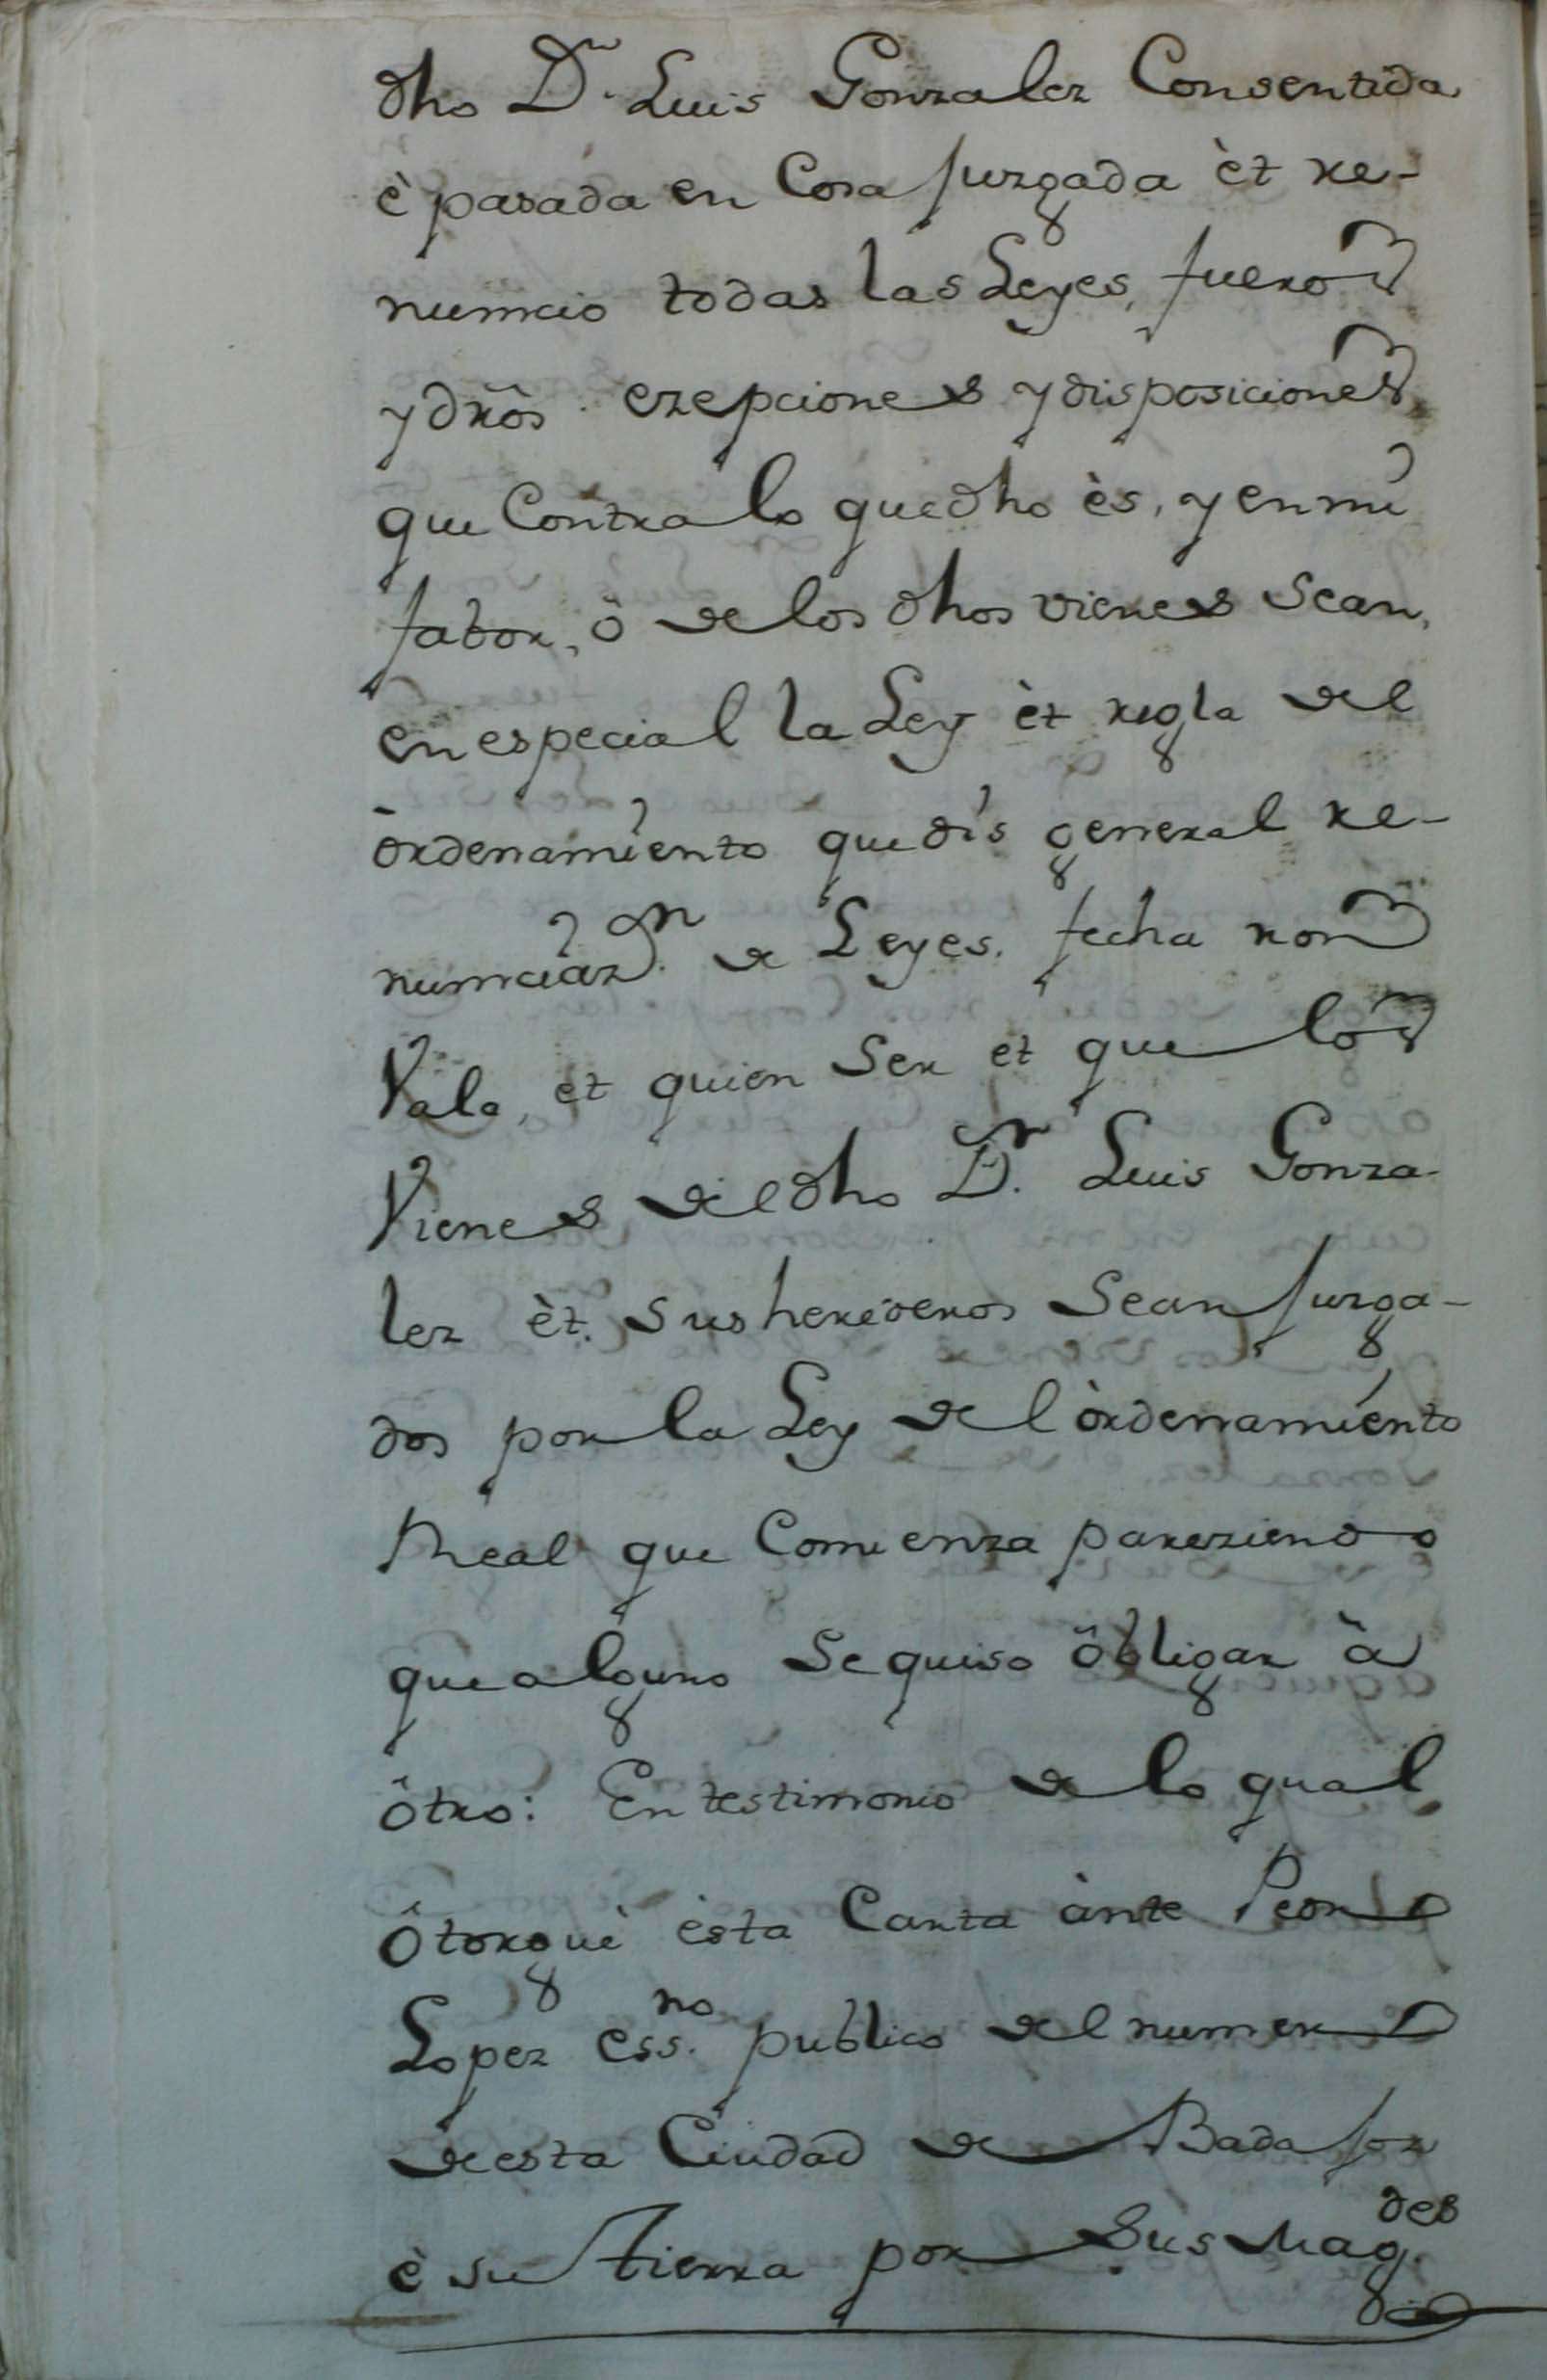 dho Dn. Luis Gonzalez Consentida
è pasada en Cosa Juzgada èt re-
nuncio todas las Leyes, fueros
y drõs. exepciones y disposiciones
que Contra lo que dho ès, y en mi
fabor, ô de los dhos vienes Sean,
en especial la Ley èt regla del
òrdenamiento que dis general re-
nunciazn. de Leyes. fecha non
Vala, et quien Ser et que los
Vienes del dho Dn. Luis Gonza-
lez èt. sus herederos Sean Juzga-
dos por la Ley del òrdenamiento
Real que Comienza pareziendo
que alguno Se quiso ôbligar à
ôtro: En testimonio de lo qual
Ôtorguè èsta Carta ànte Pedro
Lopez essno. publico del numero
de esta Ciudad de Badajoz
è su tierra por Sus Magdes.